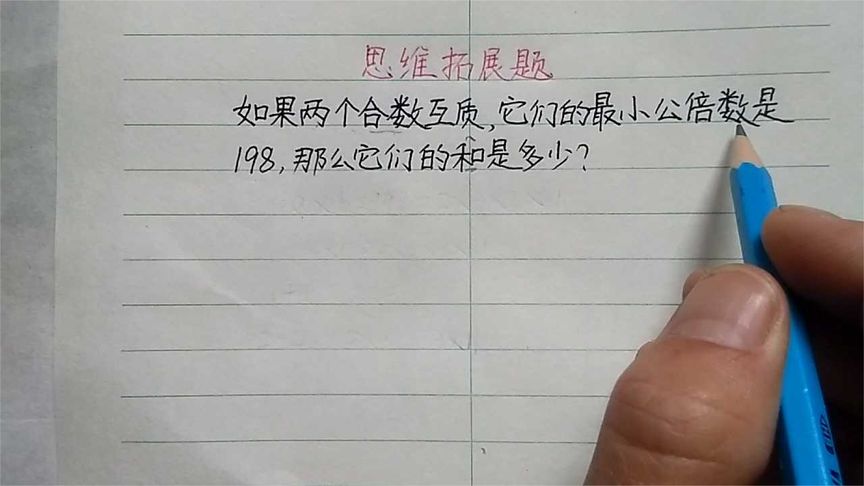 思维拓展题
如果两个合数互质,它们的最小公倍数是
198,那么它们的和是多少?